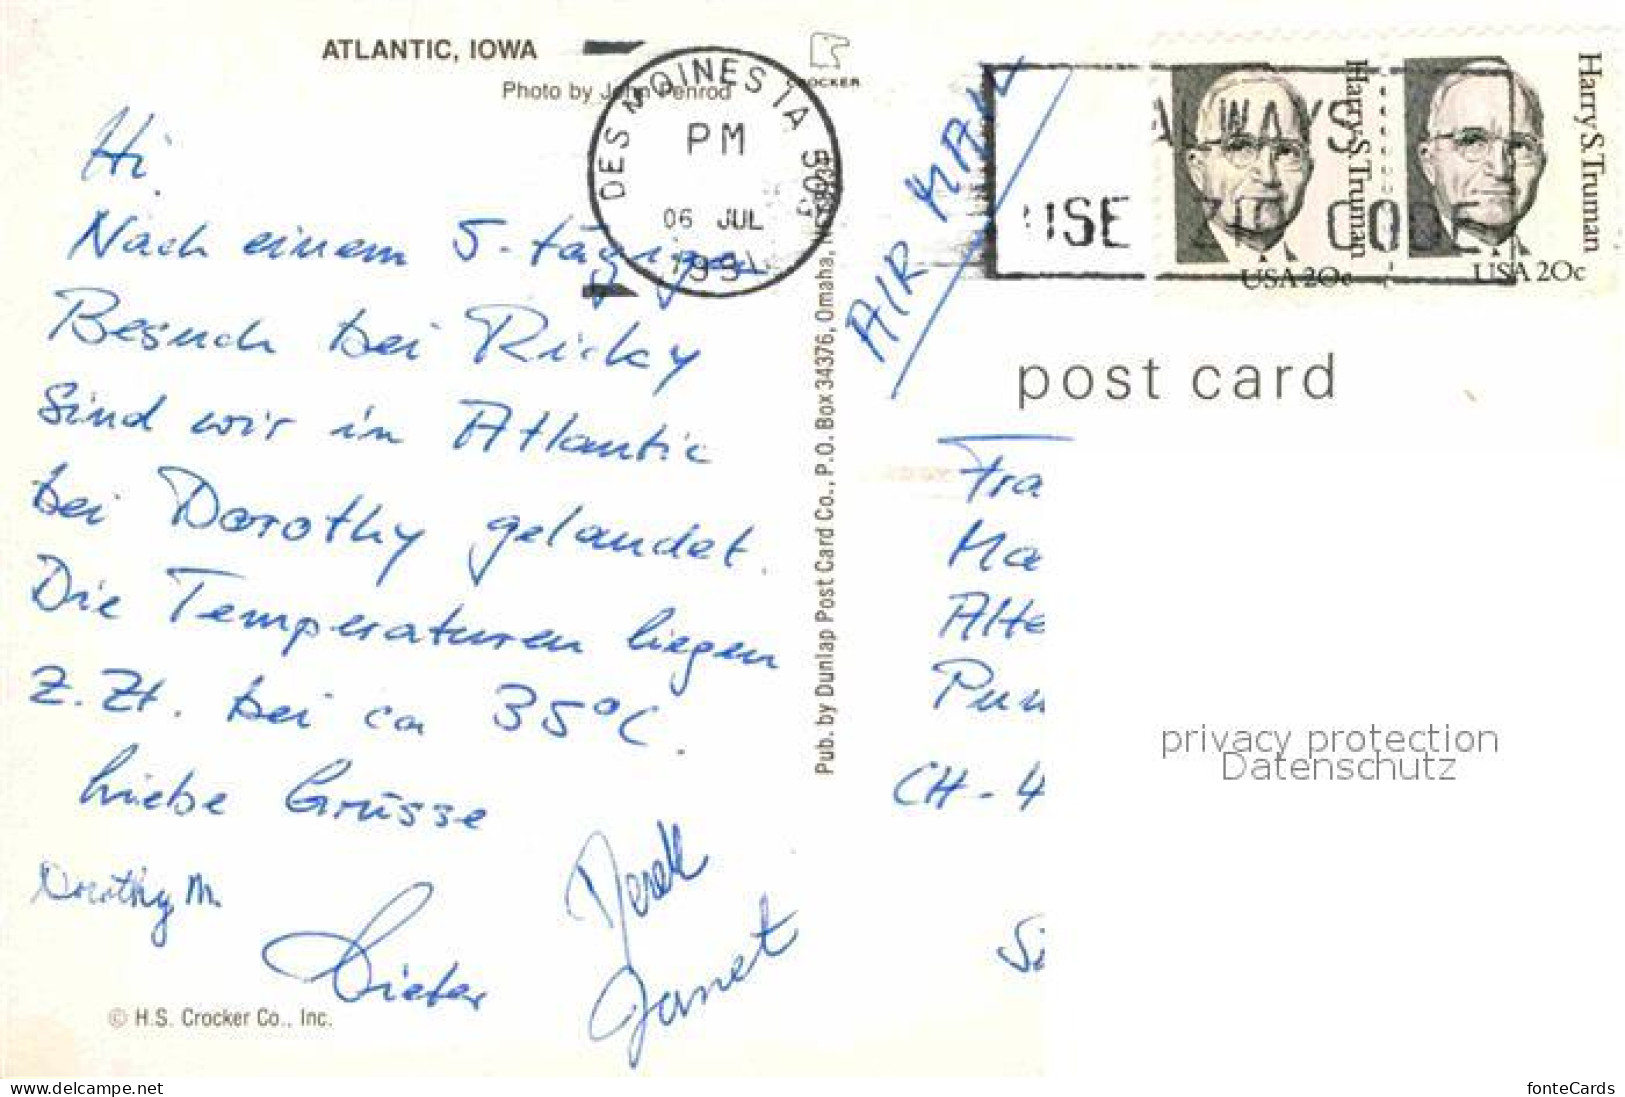 ATLANTIC, IOWA
Photo by John Penrod
CROCKER
DES MOINES IA 503
PM
06 JUL
1991
ALWAYS
USE ZIP CODE
Harry S. Truman
USA 20c
Harry S. Truman
USA 20c
AIR MAIL
post card
Hi.
Nach einem 5-tägigen
Besuch bei Ricky
sind wir in Atlantic
bei Dorothy gelandet.
Die Temperaturen liegen
z.Zt. bei ca 35°C.
Liebe Grüsse
Dorothy M.
Dieter
Derek
Janet
© H.S. Crocker Co., Inc.
Pub. by Dunlap Post Card Co., P.O. Box 34376, Omaha,
Fra
Ma
Alte
Pun
CH-4
Si
privacy protection
Datenschutz
www.delcampe.net
fonteCards